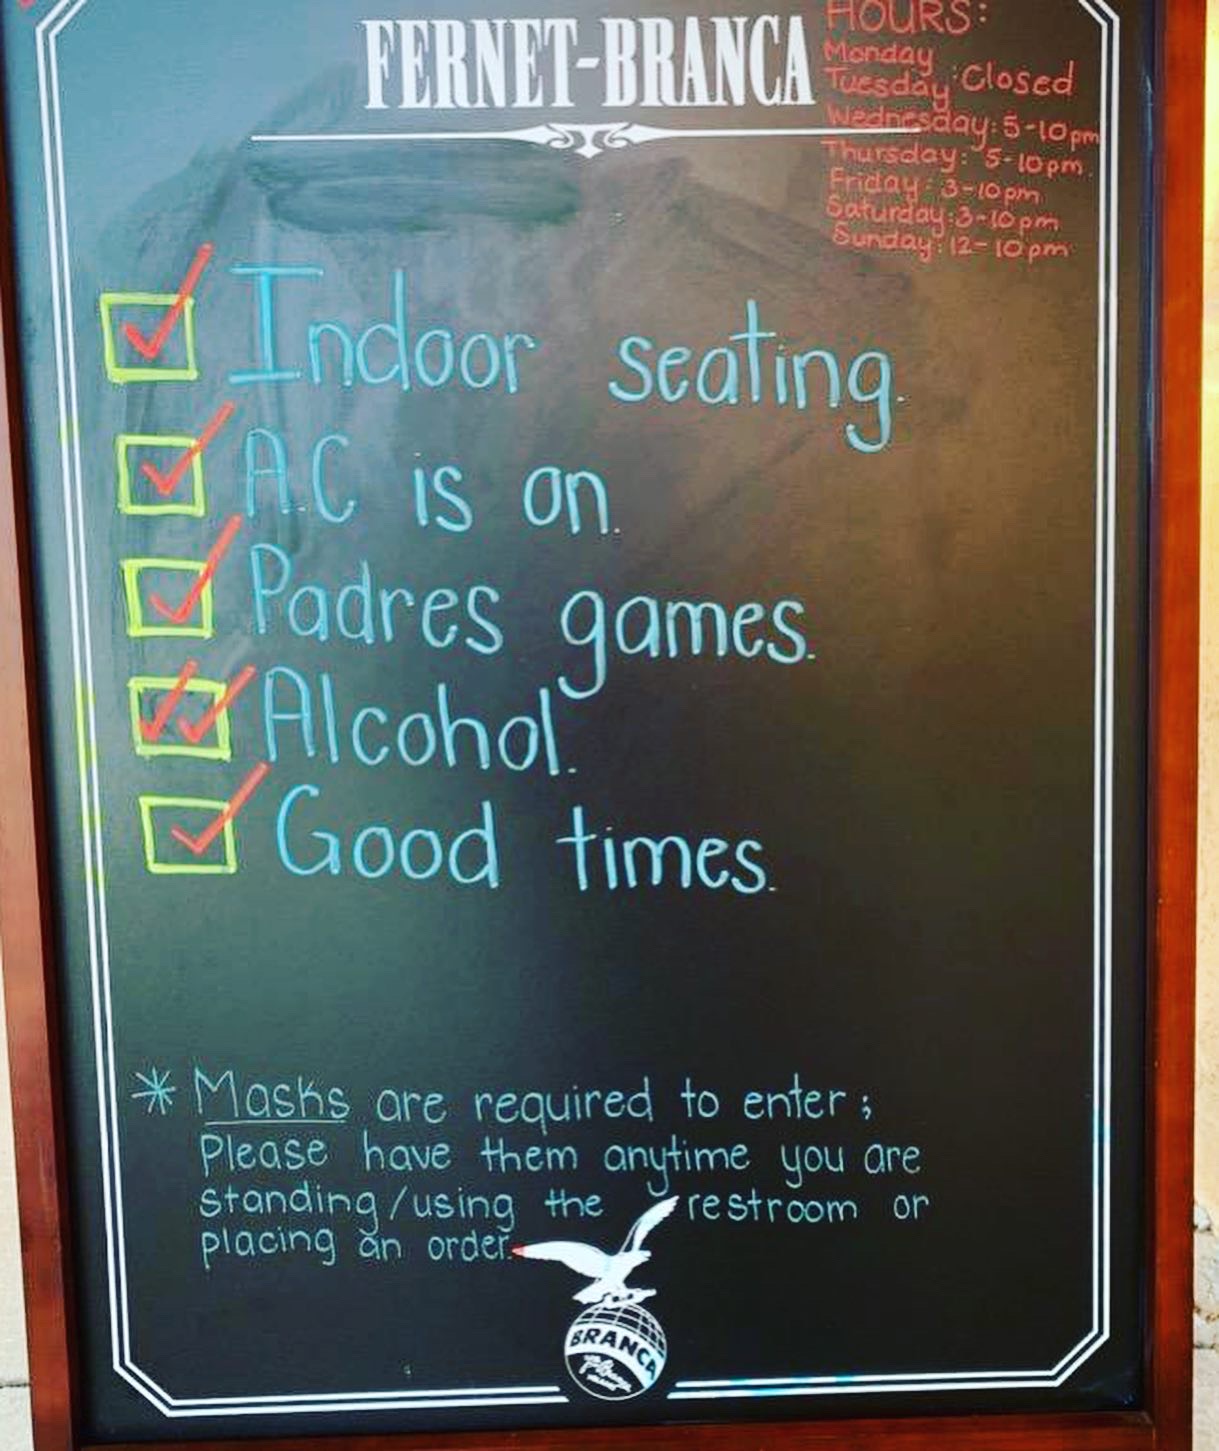 FERNET-BRANCA
HOURS:
Monday
Tuesday : Closed
Wednesday: 5-10pm
Thursday: 5-10pm.
Friday: 3-10pm
Saturday: 3-10pm
Sunday: 12-10pm
Indoor seating.
A.C is on.
Padres games.
Alcohol.
Good times.
* Masks are required to enter;
Please have them anytime you are
standing/using the restroom or
placing an order.
BRANCA